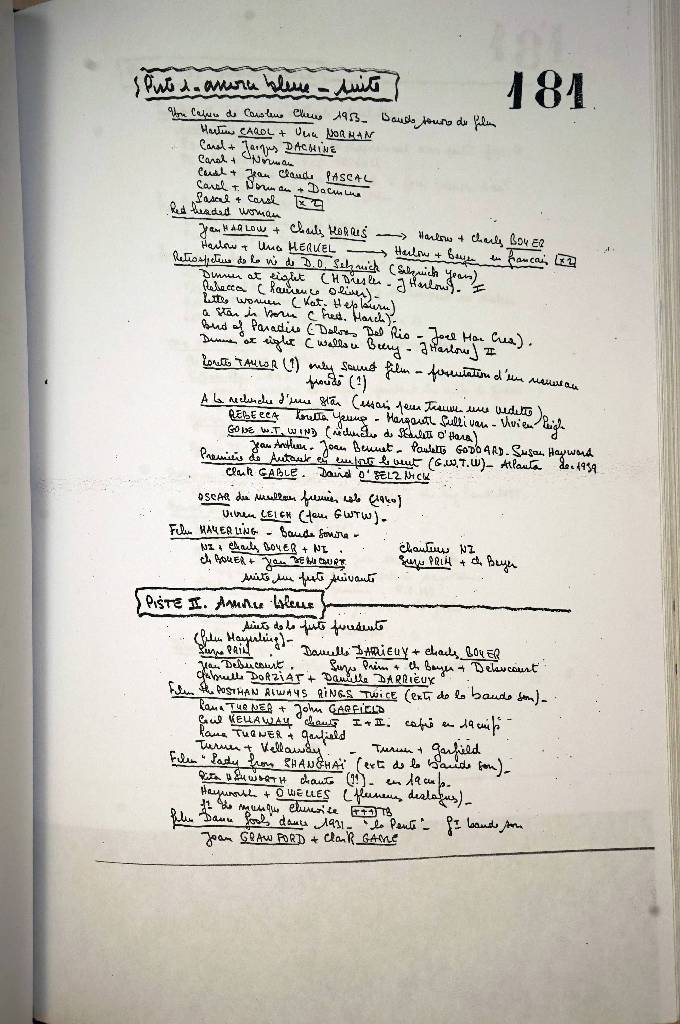 181
Piste 1 - amorce bleue - suite
Un Caprice de Caroline Cherie 1953 - Bande sonore de film
Martine CAROL + Vera NORMAN
Carol + Jacques DACMINE
Carol + Norman
Carol + Jean Claude PASCAL
Carol + Norman + Dacmine
Pascal + Carol x 2
Red headed woman
Jean HARLOW + Charles → Harlow + Charles BOYER
Harlow + Una MERKEL → Harlow + Boyer en francais x 2
Retrospective de la vie de D.O. Selznick (Selznick years)
Dinner at eight (M Dresler - J Harlow) - I
Rebecca (Laurence Olivier) -
Little women (Kat. Hepburn)
a Star is born (Fred. March) -
Bird of Paradise (Dolores Del Rio - Joel Mac Crea).
Dinner at eight (Wallace Beery - J Harlow) II
TAYLOR (?) only sound film - presentation d'un nouveau
procédé (?)
A la recherche d'une Star (essais pour trouver une vedette)
REBECCA Loretta Young - Margaret Sullivan - Vivien Leigh
GONE W.T. WIND (recherche de Scarlett O'Hara)
Jean Arthur - Joan Bennet - Paulette GODDARD - Susan Hayward
Première de Autant en emporte le vent (G.W.T.W) - Atlanta dec 1939
Clark GABLE - David O'SELZNICK
OSCAR du meilleur premier role (1940)
Vivien LEIGH (pour GWTW) -
Film MAYERLING - Bande sonore -
NI + Charles BOYER + NI. Chanteur NI
ch BOYER + Jean DEBUCOURT Suzy PRIM + ch Boyer
suite sur piste suivante
PISTE II. Amorce bleue
suite de la piste precedente
(film Mayerling) -
Suzy PRIM. Danielle DARRIEUX + charles BOYER
Jean Debucourt. Suzy Prim + ch Boyer + Debucourt
Gabrielle DORZIAT + Danielle DARRIEUX
Film the POSTMAN ALWAYS RINGS TWICE (ext de la bande son) -
Lana TURNER + John GARFIELD
Cecil KELLAWAY chante I + II. copie en 19 cm/s
Lana TURNER + Garfield
Turner + Kellaway - Turner + Garfield
Film "Lady from SHANGHAÏ (ext de la bande son) -
Rita HAYWORTH chante (??) - en 19 cm/s.
Hayworth + O WELLES (plusieurs dialogues) -
de musique chinoise +++ TB
film Dance fools dance 1931 - "la Pente" - bande son
Joan CRAWFORD + Clark GABLE